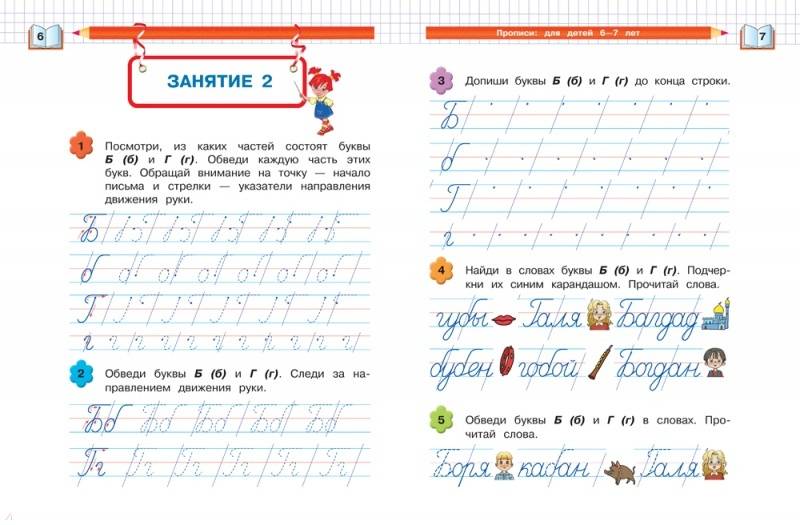 6
ЗАНЯТИЕ 2
1 Посмотри, из каких частей состоят буквы
Б (б) и Г (г). Обведи каждую часть этих
букв. Обращай внимание на точку — начало
письма и стрелки — указатели направления
движения руки.
Б
б
Г
г
2 Обведи буквы Б (б) и Г (г). Следи за на-
правлением движения руки.
Бб Бб Бб Бб Бб Бб
Гг Гг Гг Гг Гг Гг
Прописи: для детей 6—7 лет
7
3 Допиши буквы Б (б) и Г (г) до конца строки.
Б
б
Г
г
4 Найди в словах буквы Б (б) и Г (г). Подчер-
кни их синим карандашом. Прочитай слова.
губы Галя Багдад
бубен гобой Богдан
5 Обведи буквы Б (б) и Г (г) в словах. Про-
читай слова.
Боря кабан Галя